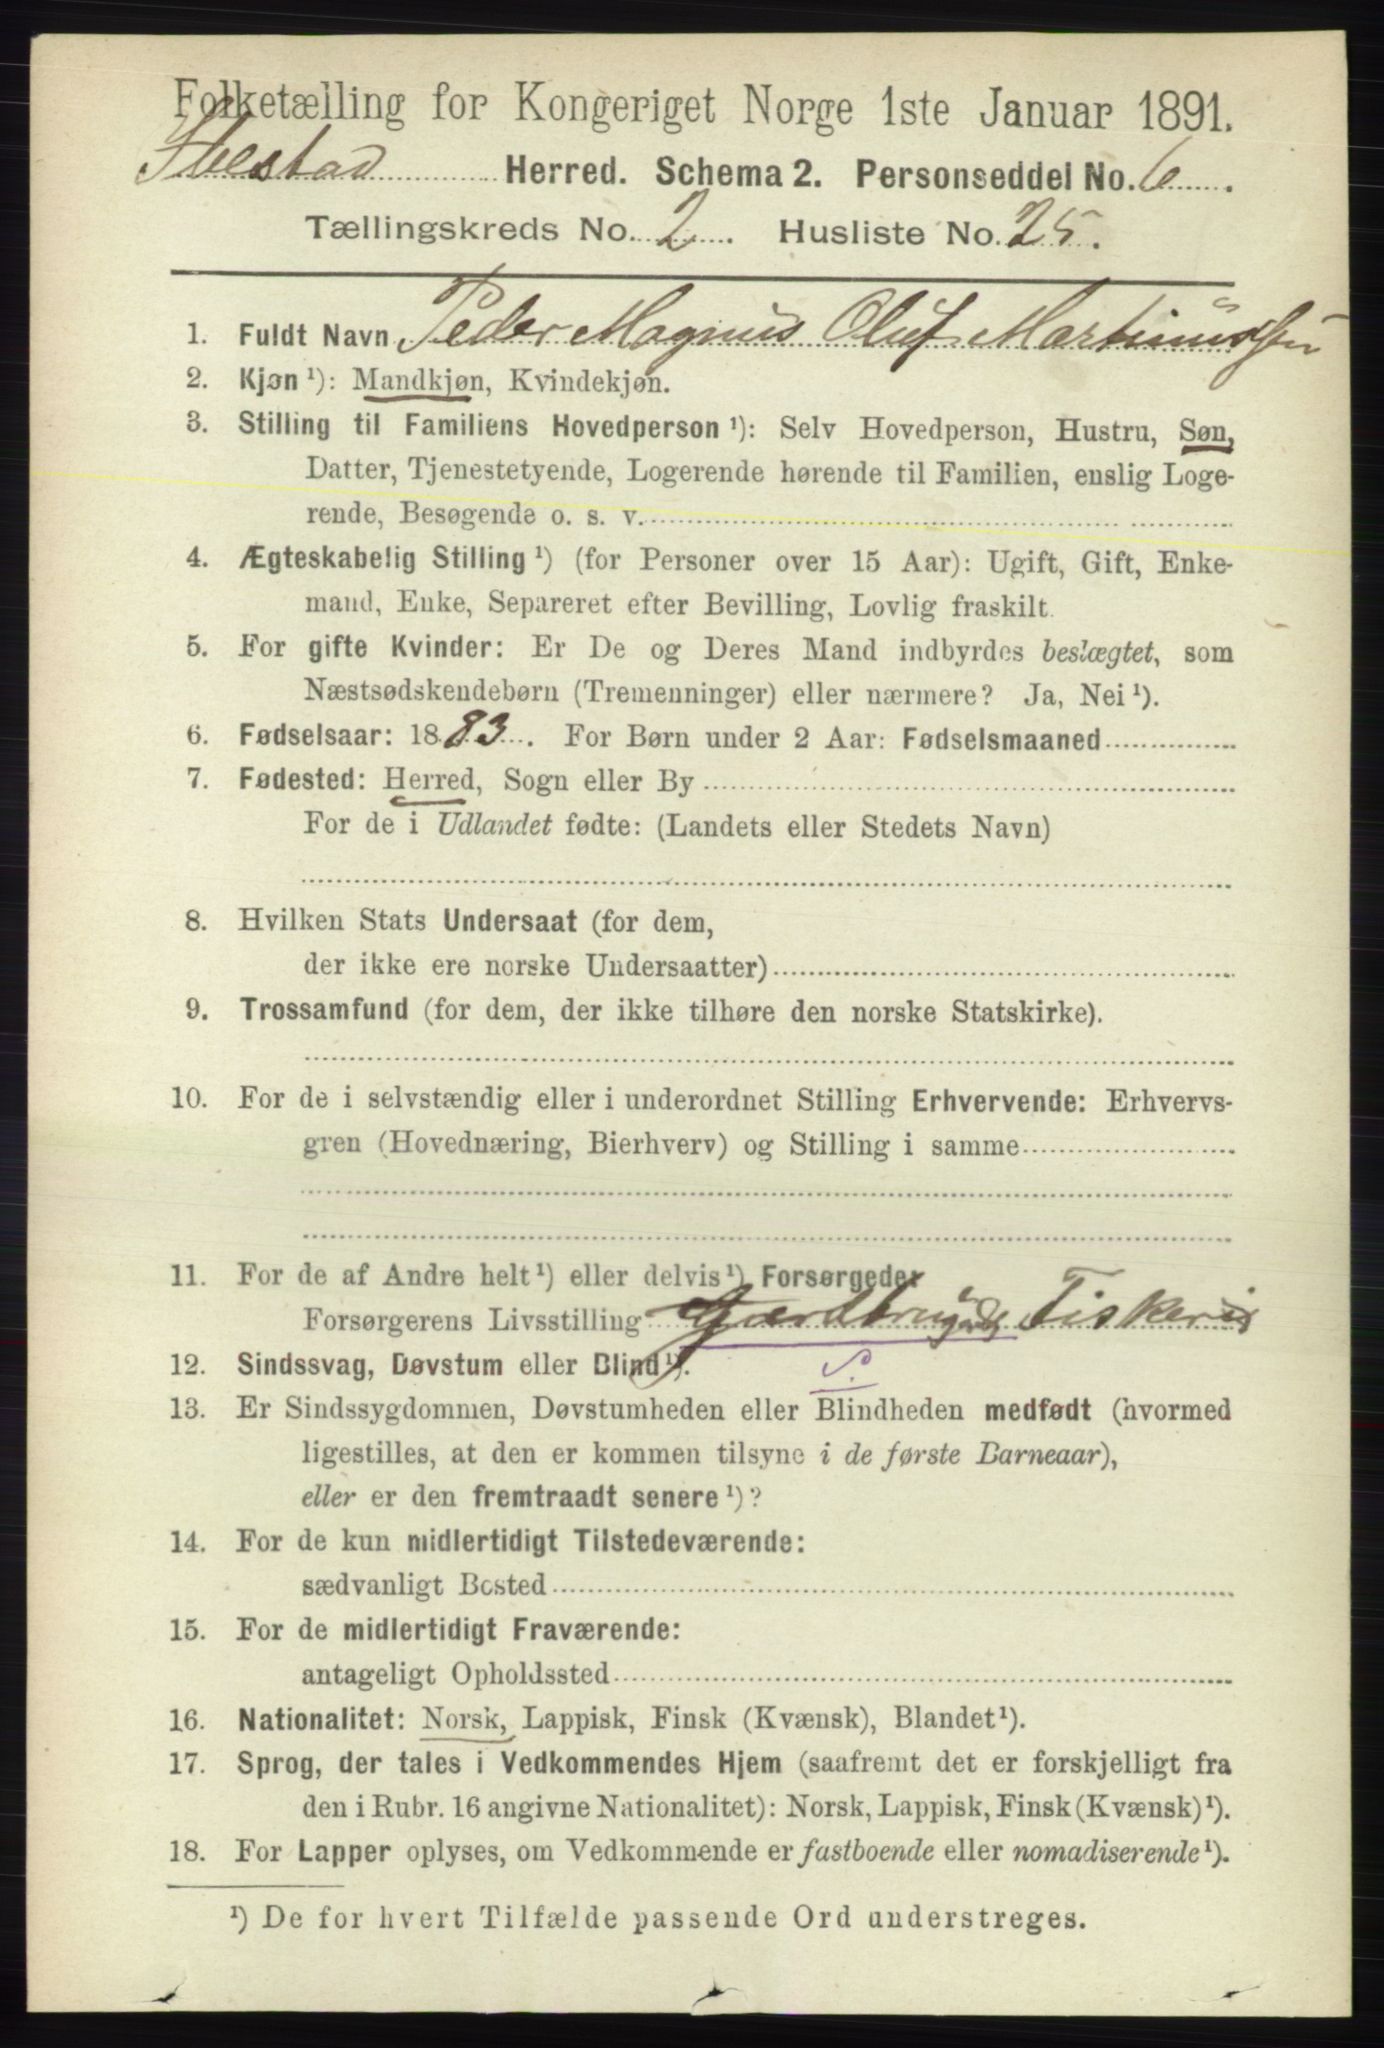 Folketælling for Kongeriget Norge 1ste Januar 1891.
Ibestad Herred. Schema 2. Personseddel No. 6.
Tællingskreds No. 2. Husliste No. 25.
1. Fuldt Navn Peder Magnus Oluf Martinussen
2. Kjøn ¹): Mandkjøn, Kvindekjøn.
3. Stilling til Familiens Hovedperson ¹): Selv Hovedperson, Hustru, Søn,
Datter, Tjenestetyende, Logerende hørende til Familien, enslig Loge-
rende, Besøgende o. s. v.
4. Ægteskabelig Stilling ¹) (for Personer over 15 Aar): Ugift, Gift, Enke-
mand, Enke, Separeret efter Bevilling, Lovlig fraskilt.
5. For gifte Kvinder: Er De og Deres Mand indbyrdes beslægtet, som
Næstsødskendebørn (Tremenninger) eller nærmere? Ja, Nei ¹).
6. Fødselsaar: 1883. For Børn under 2 Aar: Fødselsmaaned
7. Fødested: Herred, Sogn eller By
For de i Udlandet fødte: (Landets eller Stedets Navn)
8. Hvilken Stats Undersaat (for dem,
der ikke ere norske Undersaatter)
9. Trossamfund (for dem, der ikke tilhøre den norske Statskirke).
10. For de i selvstændig eller i underordnet Stilling Erhvervende: Erhvervs-
gren (Hovednæring, Bierhverv) og Stilling i samme
11. For de af Andre helt ¹) eller delvis ¹) Forsørgede:
Forsørgerens Livsstilling Gaardbrug og Fiskeri
12. Sindssvag, Døvstum eller Blind ¹). S.
13. Er Sindssygdommen, Døvstumheden eller Blindheden medfødt (hvormed
ligestilles, at den er kommen tilsyne i de første Barneaar),
eller er den fremtraadt senere ¹)?
14. For de kun midlertidigt Tilstedeværende:
sædvanligt Bosted
15. For de midlertidigt Fraværende:
antageligt Opholdssted
16. Nationalitet: Norsk, Lappisk, Finsk (Kvænsk), Blandet ¹).
17. Sprog, der tales i Vedkommendes Hjem (saafremt det er forskjelligt fra
den i Rubr. 16 angivne Nationalitet): Norsk, Lappisk, Finsk (Kvænsk) ¹).
18. For Lapper oplyses, om Vedkommende er fastboende eller nomadiserende ¹).
¹) De for hvert Tilfælde passende Ord understreges.